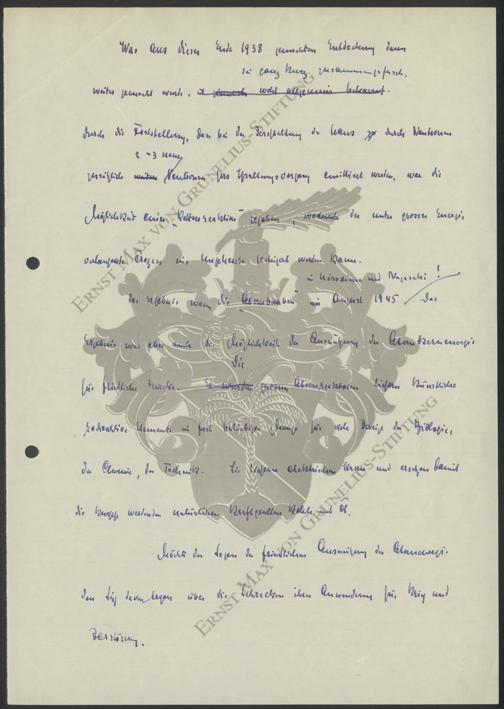 Was aus dieser Ende 1938 gemachten Entdeckung dann
sei ganz kurz zusammengefasst.
weiter gemacht wurde, ist wohl allgemein bekannt.
Durch die Feststellung, dass bei der Zerspaltung des Urans durch Neutronen
2-3 neue
zusätzlich Neutronen pro Spaltungsvorgang emittiert werden, war die
Möglichkeit einer "Kettenreaktion" gegeben, wodurch der unter grosser Energie
verlaufende Prozess ins Ungeheure gesteigert werden kann.
in Hiroshima und Nagasaki!
Das Ergebnis waren die "Atombomben" im August 1945 Das
Ergebnis war aber auch die Möglichkeit der Ausnützung der Atomkernenergie
Die
für friedliche Zwecke. Es wurden grossen Atomreaktoren liefern künstliche
radioaktive Elemente in fast beliebiger Menge für viele Zweige der Biologie,
der Chemie, der Technik. Sie liefern elektrischen Strom und ersetzen damit
die knapp werdenden natürlichen Kraftquellen Kohle und Öl.
Möchte der Segen der friedlichen Ausnützung der Atomenergie
den Sieg davontragen über die Schrecken ihrer Anwendung für Krieg und
Zerstörung.
ERNST MAX VON GRUNELIUS-STIFTUNG
ERNST MAX VON GRUNELIUS-STIFTUNG